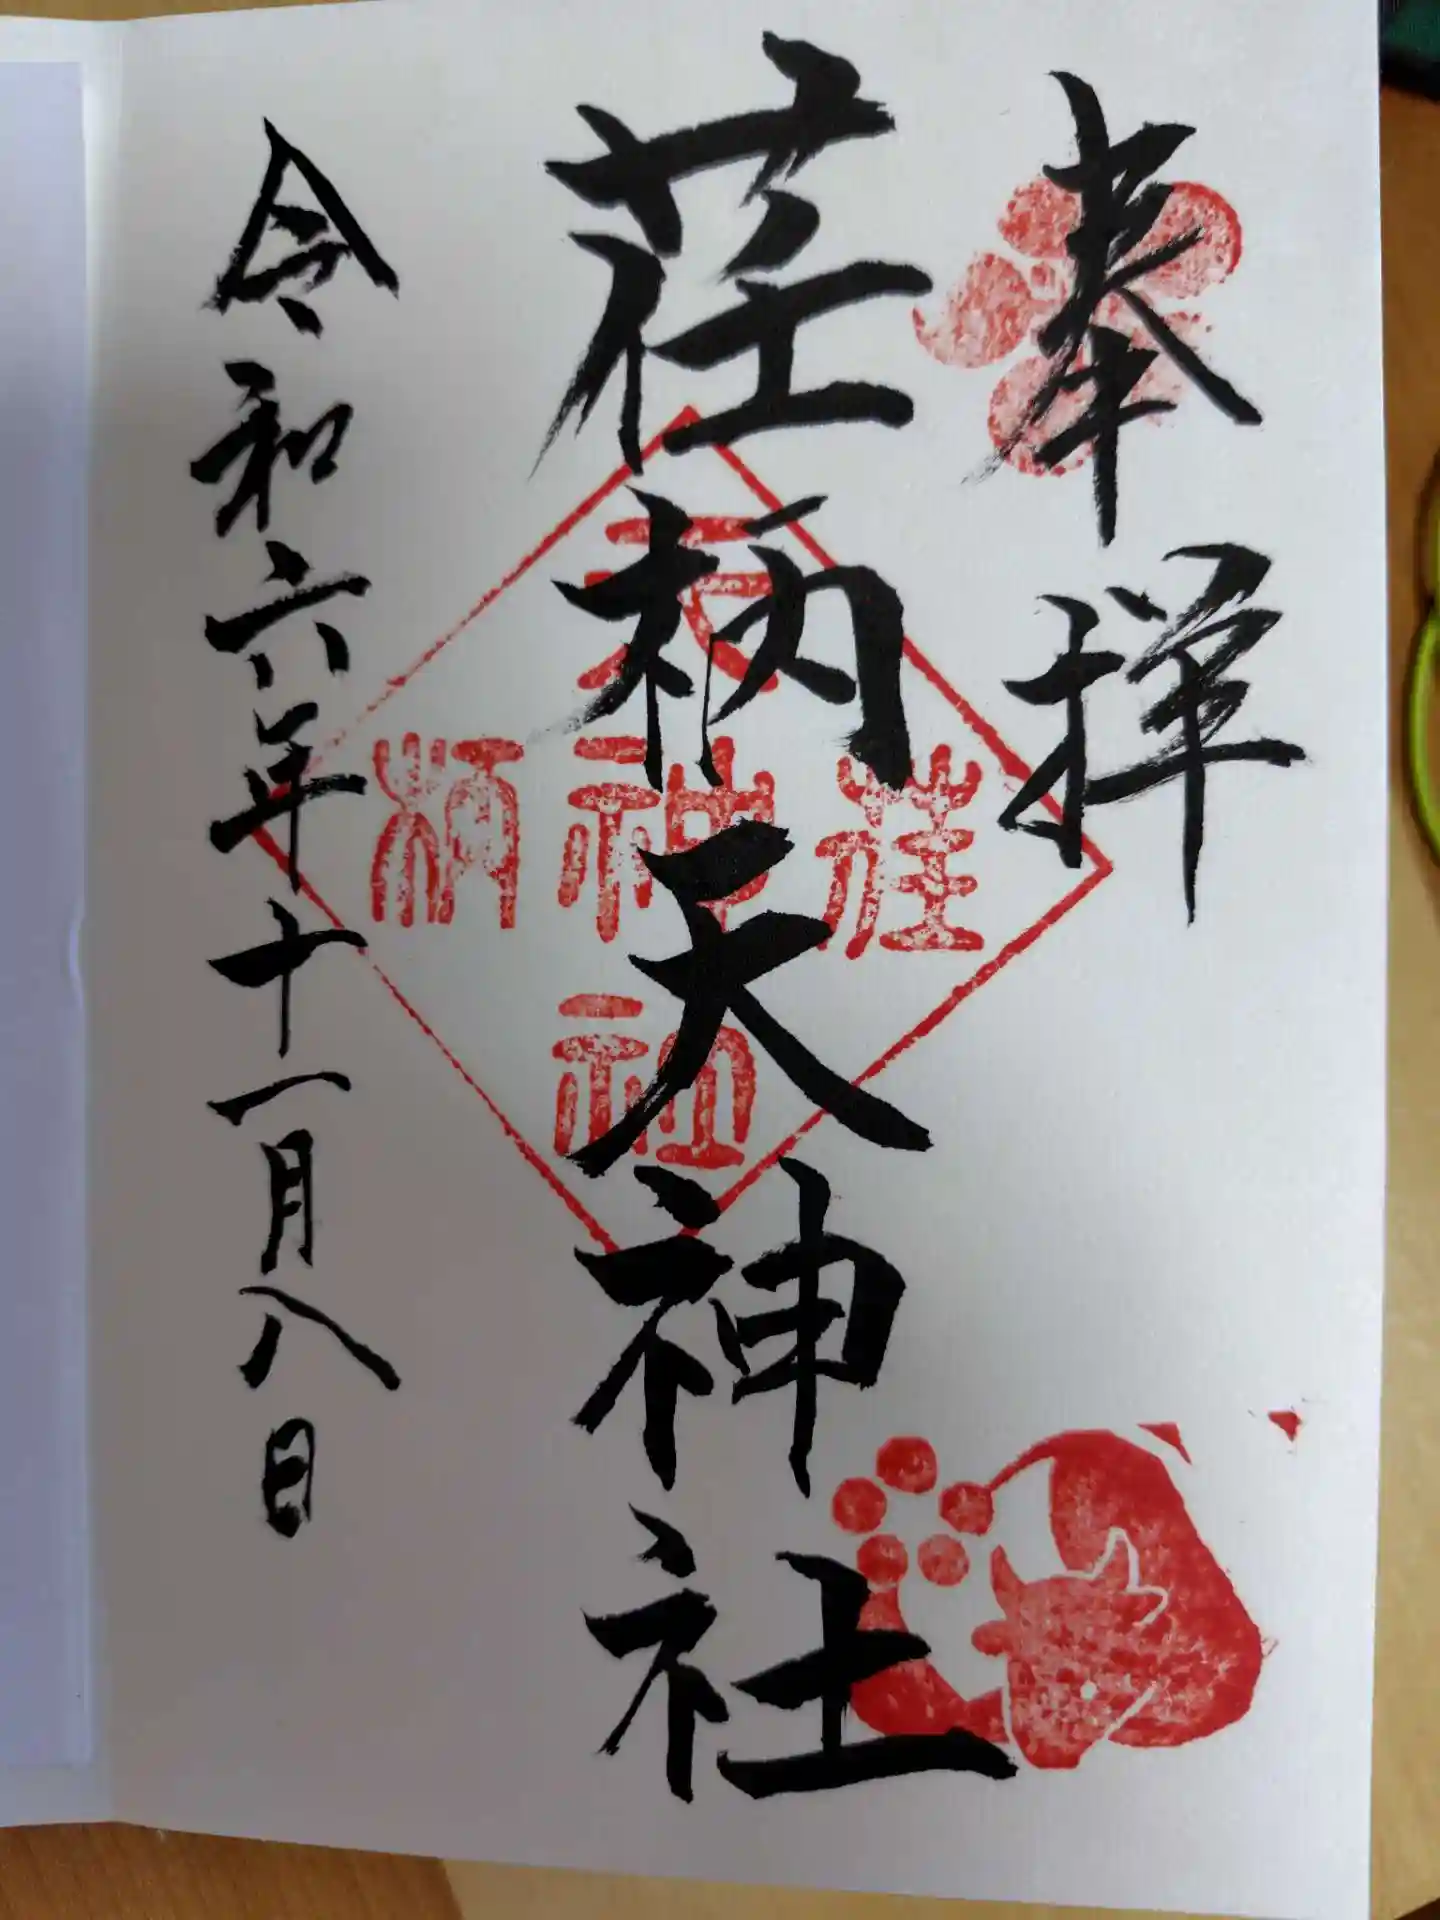 奉拝
荏柄天神社
天
荏神柄
社
令和六年十一月八日